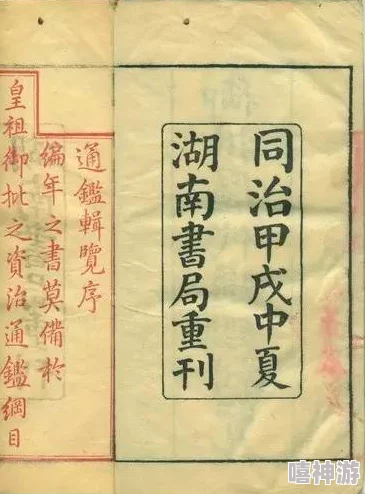 同治甲戌中夏
湖南書局重刊
通鑑輯覽序
編年之書莫備於
皇祖御批之資治通鑑綱目
嘻神游